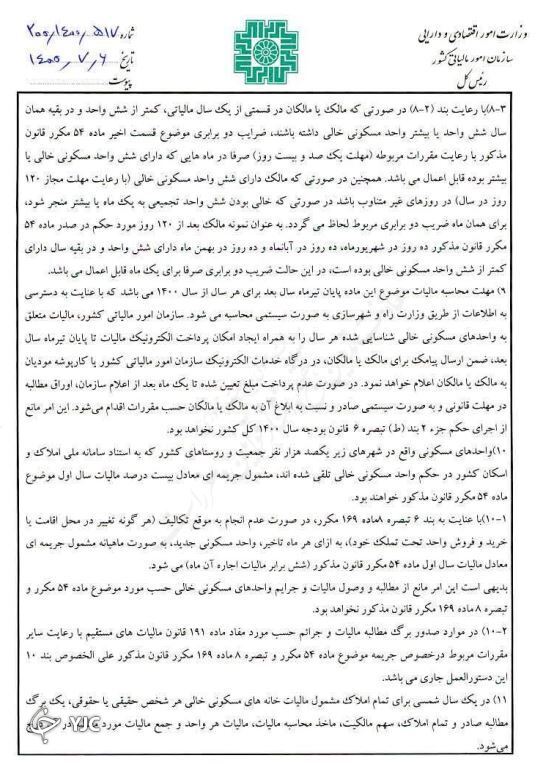 وزارت امور اقتصادی و دارایی
سازمان امور مالیاتی کشور
رئیس کل
شماره ۲۰۰/۱۴۰۰/۵۱۷
تاریخ ۱۴۰۰/۷/۶
پیوست
۸-۳)با رعایت بند (۲-۸) در صورتی که مالک یا مالکان در قسمتی از یک سال مالیاتی، کمتر از شش واحد و در بقیه همان
سال شش واحد یا بیشتر واحد مسکونی خالی داشته باشند، ضرایب دو برابری موضوع قسمت اخیر ماده ۵۴ مکرر قانون
مذکور با رعایت مقررات مربوطه (مهلت یک صد و بیست روز) صرفا در ماه هایی که دارای شش واحد مسکونی خالی یا
بیشتر بوده قابل اعمال می باشد. همچنین در صورتی که مالک دارای شش واحد مسکونی خالی (با رعایت مهلت مجاز ۱۲۰
روز در سال) در روزهای غیر متناوب باشد در صورتی که خالی بودن شش واحد تجمیعی به یک ماه یا بیشتر منجر شود،
برای همان ماه ضریب دو برابری مربوط لحاظ می گردد. به عنوان نمونه مالک بعد از ۱۲۰ روز مورد حکم در صدر ماده ۵۴
مکرر قانون مذکور ده روز در شهریورماه، ده روز در آبانماه و ده روز در بهمن ماه دارای شش واحد و در بقیه سال دارای
کمتر از شش واحد مسکونی خالی بوده است، در این حالت ضریب دو برابری صرفا برای یک ماه قابل اعمال می باشد.
۹) مهلت محاسبه مالیات موضوع این ماده پایان تیرماه سال بعد برای هر سال از سال ۱۴۰۰ می باشد که با عنایت به دسترسی
به اطلاعات از طریق وزارت راه و شهرسازی به صورت سیستمی محاسبه می شود. سازمان امور مالیاتی کشور، مالیات متعلق
به واحدهای مسکونی خالی شناسایی شده هر سال را به همراه ایجاد امکان پرداخت الکترونیک مالیات تا پایان تیرماه سال
بعد، ضمن ارسال پیامک برای مالک یا مالکان، در درگاه خدمات الکترونیک سازمان امور مالیاتی کشور یا کارپوشه مودیان
به مالک یا مالکان اعلام خواهد نمود. در صورت عدم پرداخت مبلغ تعیین شده تا یک ماه بعد از اعلام سازمان، اوراق مطالبه
در مهلت قانونی و به صورت سیستمی صادر و نسبت به ابلاغ آن به مالک یا مالکان حسب مقررات اقدام می‌شود. این امر مانع
از اجرای حکم جزء ۲ بند (ط) تبصره ۶ قانون بودجه سال ۱۴۰۰ کل کشور نخواهد بود.
۱۰)واحدهای مسکونی واقع در شهرهای زیر یکصد هزار نفر جمعیت و روستاهای کشور که به استناد سامانه ملی املاک و
اسکان کشور در حکم واحد مسکونی خالی تلقی شده اند، مشمول جریمه ای معادل بیست درصد مالیات سال اول موضوع
ماده ۵۴ مکرر قانون مذکور خواهند بود.
۱۰-۱)با عنایت به بند ۶ تبصره ۸ماده ۱۶۹ مکرر، در صورت عدم انجام به موقع تکالیف (هر گونه تغییر در محل اقامت یا
خرید و فروش واحد تحت تملک خود)، به ازای هر ماه تاخیر، واحد مسکونی جدید، به صورت ماهیانه مشمول جریمه ای
معادل مالیات سال اول ماده ۵۴ مکرر قانون مذکور (شش برابر مالیات اجاره آن ماه) می شود.
بدیهی است این امر مانع از مطالبه و وصول مالیات و جرایم واحدهای مسکونی خالی حسب مورد موضوع ماده ۵۴ مکرر و
تبصره ۸ ماده ۱۶۹ مکرر قانون مذکور نخواهد بود.
۱۰-۲) در موارد صدور برگ مطالبه مالیات و جرائم حسب مورد مفاد ماده ۱۹۱ قانون مالیات های مستقیم با رعایت سایر
مقررات مربوط درخصوص جریمه موضوع ماده ۵۴ مکرر و تبصره ۸ ماده ۱۶۹ مکرر قانون مذکور علی الخصوص بند ۱۰
این دستورالعمل جاری می باشد.
۱۱) در یک سال شمسی برای تمام املاک مشمول مالیات خانه های مسکونی خالی هر شخص حقیقی یا حقوقی، یک برگ
مطالبه صادر و تمام املاک، سهم مالکیت، ماخذ محاسبه مالیات، مالیات هر واحد و جمع مالیات مورد
می‌شود.
YJC